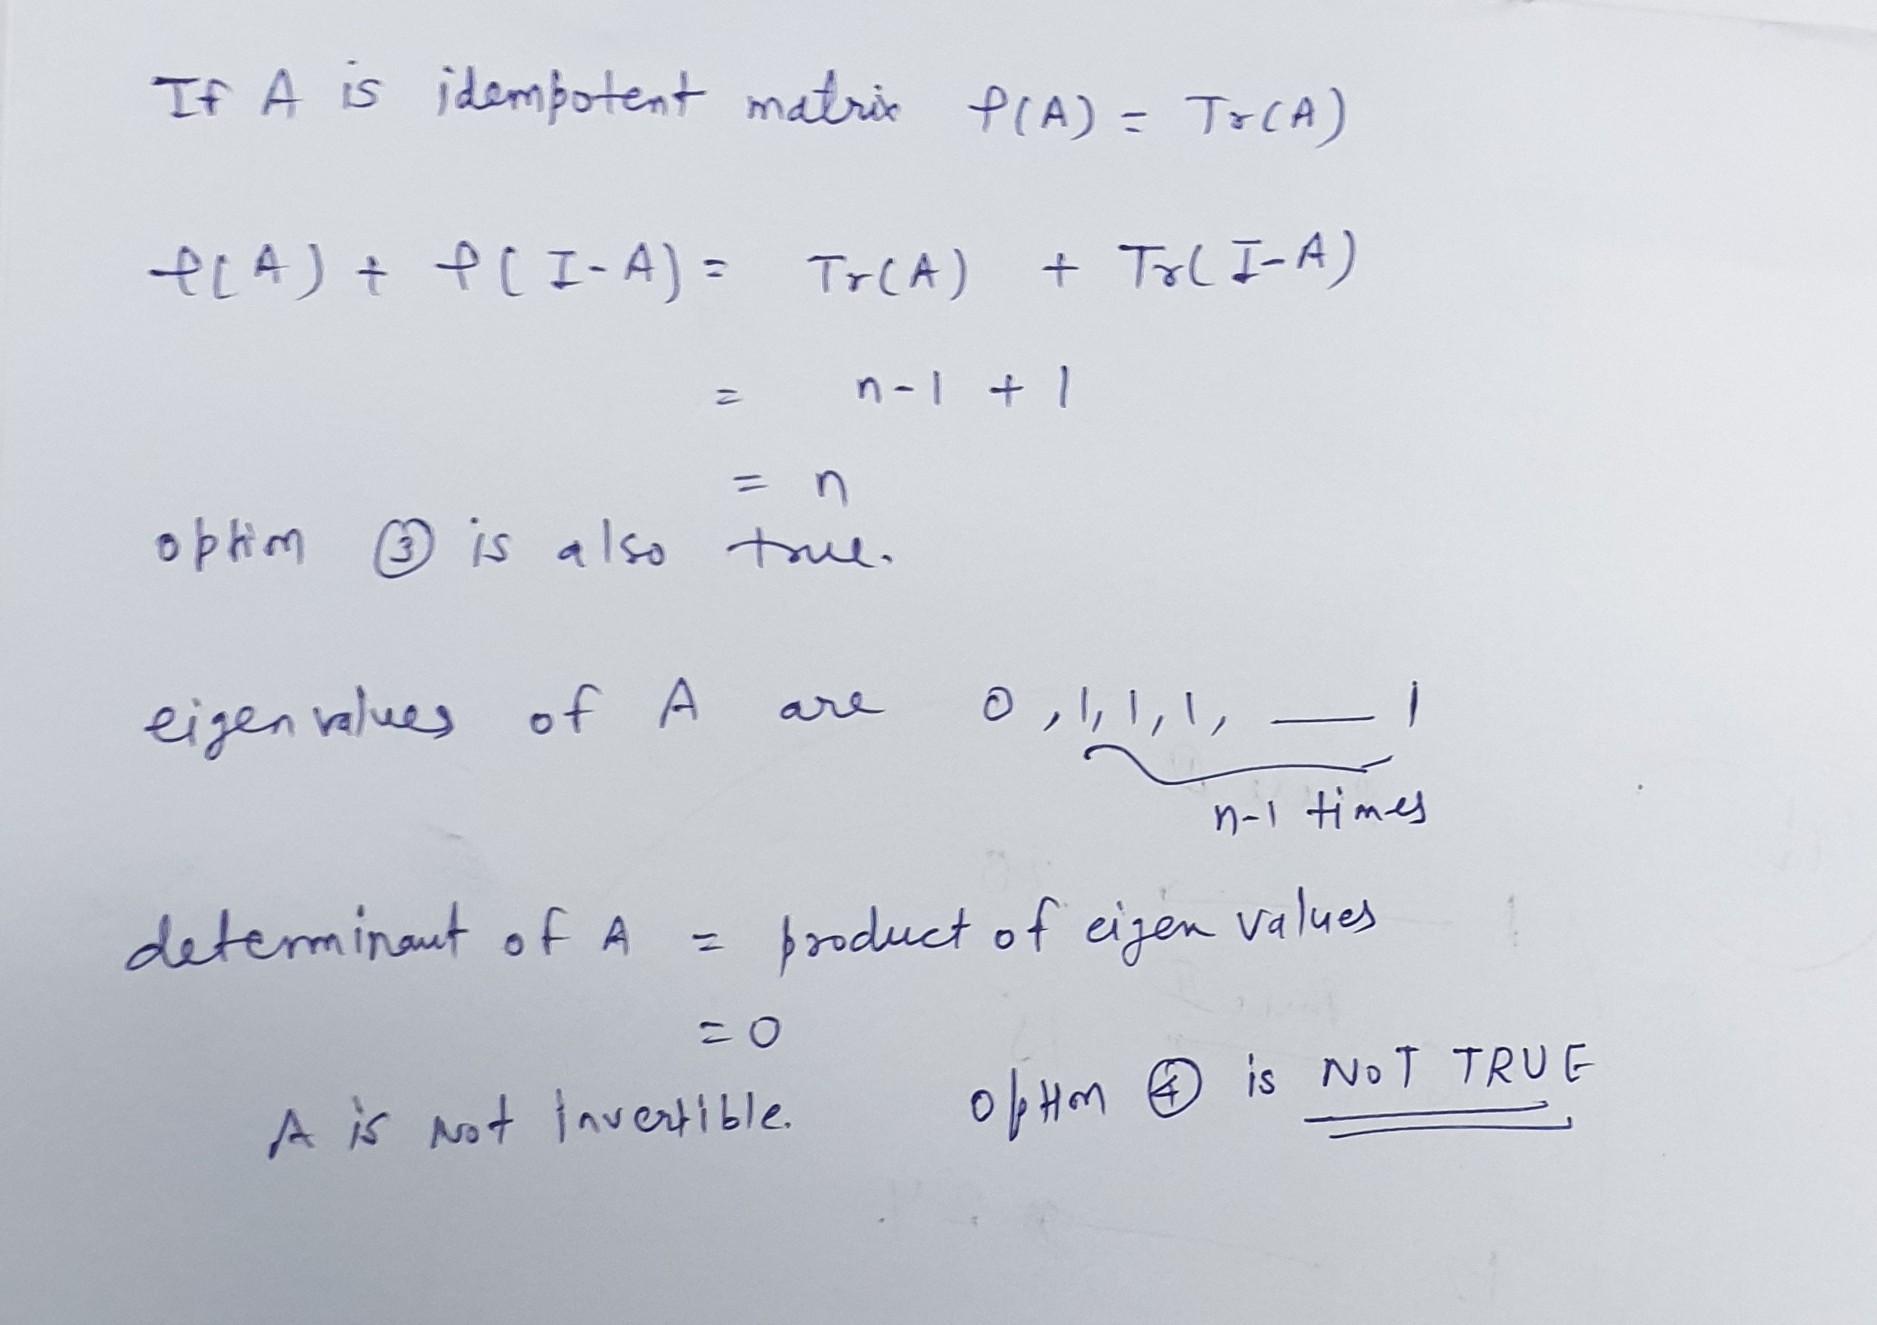 If A is idempotent matrix ρ(A) = Tr(A)
ρ(A) + ρ(I-A) = Tr(A) + Tr(I-A)
= n-1 + 1
= n
option ③ is also true.
eigen values of A are 0, 1, 1, 1, — 1
n-1 times
determinant of A = product of eigen values
= 0
A is not invertible. option ④ is NOT TRUE